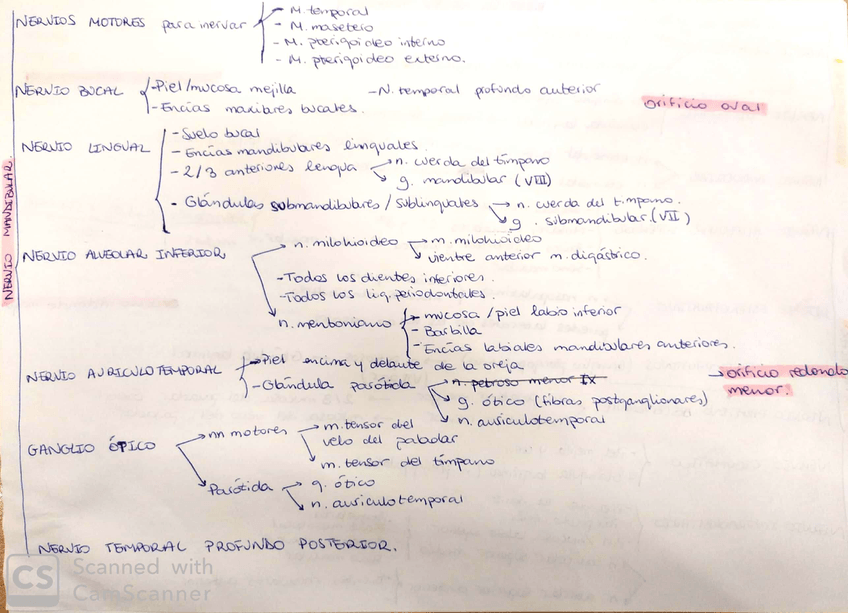 NERVIO MANDIBULAR.
NERVIOS MOTORES para inervar
- M. temporal
- M. masetero
- M. pterigoideo interno
- M. pterigoideo externo.
NERVIO BUCAL
- Piel/mucosa mejilla
- Encías maxilares bucales.
- N. temporal profundo anterior
orificio oval
NERVIO LINGUAL
- Suelo bucal
- Encías mandibulares linguales.
- 2/3 anteriores lengua → n. cuerda del tímpano
g. mandibular (VIII)
- Glándulas submandibulares / sublinguales → n. cuerda del tímpano.
g. submandibular (VII)
NERVIO ALVEOLAR INFERIOR
n. milohioideo → m. milohioideo
vientre anterior m. digástrico.
- Todos los dientes inferiores.
- Todos los lig. periodontales.
n. mentoniano
mucosa / piel labio inferior
- Barbilla
- Encías labiales mandibulares anteriores.
NERVIO AURICULOTEMPORAL
- Piel encima y delante de la oreja
- Glándula parótida
n. petroso menor IX
→ orificio redondo
menor.
g. ótico (fibras postganglionares)
n. auriculotemporal
GANGLIO ÓPICO
nn motores → m. tensor del
velo del paladar
m. tensor del tímpano
Parótida → g. ótico
n. auriculotemporal
NERVIO TEMPORAL PROFUNDO POSTERIOR.
CS Scanned with
CamScanner